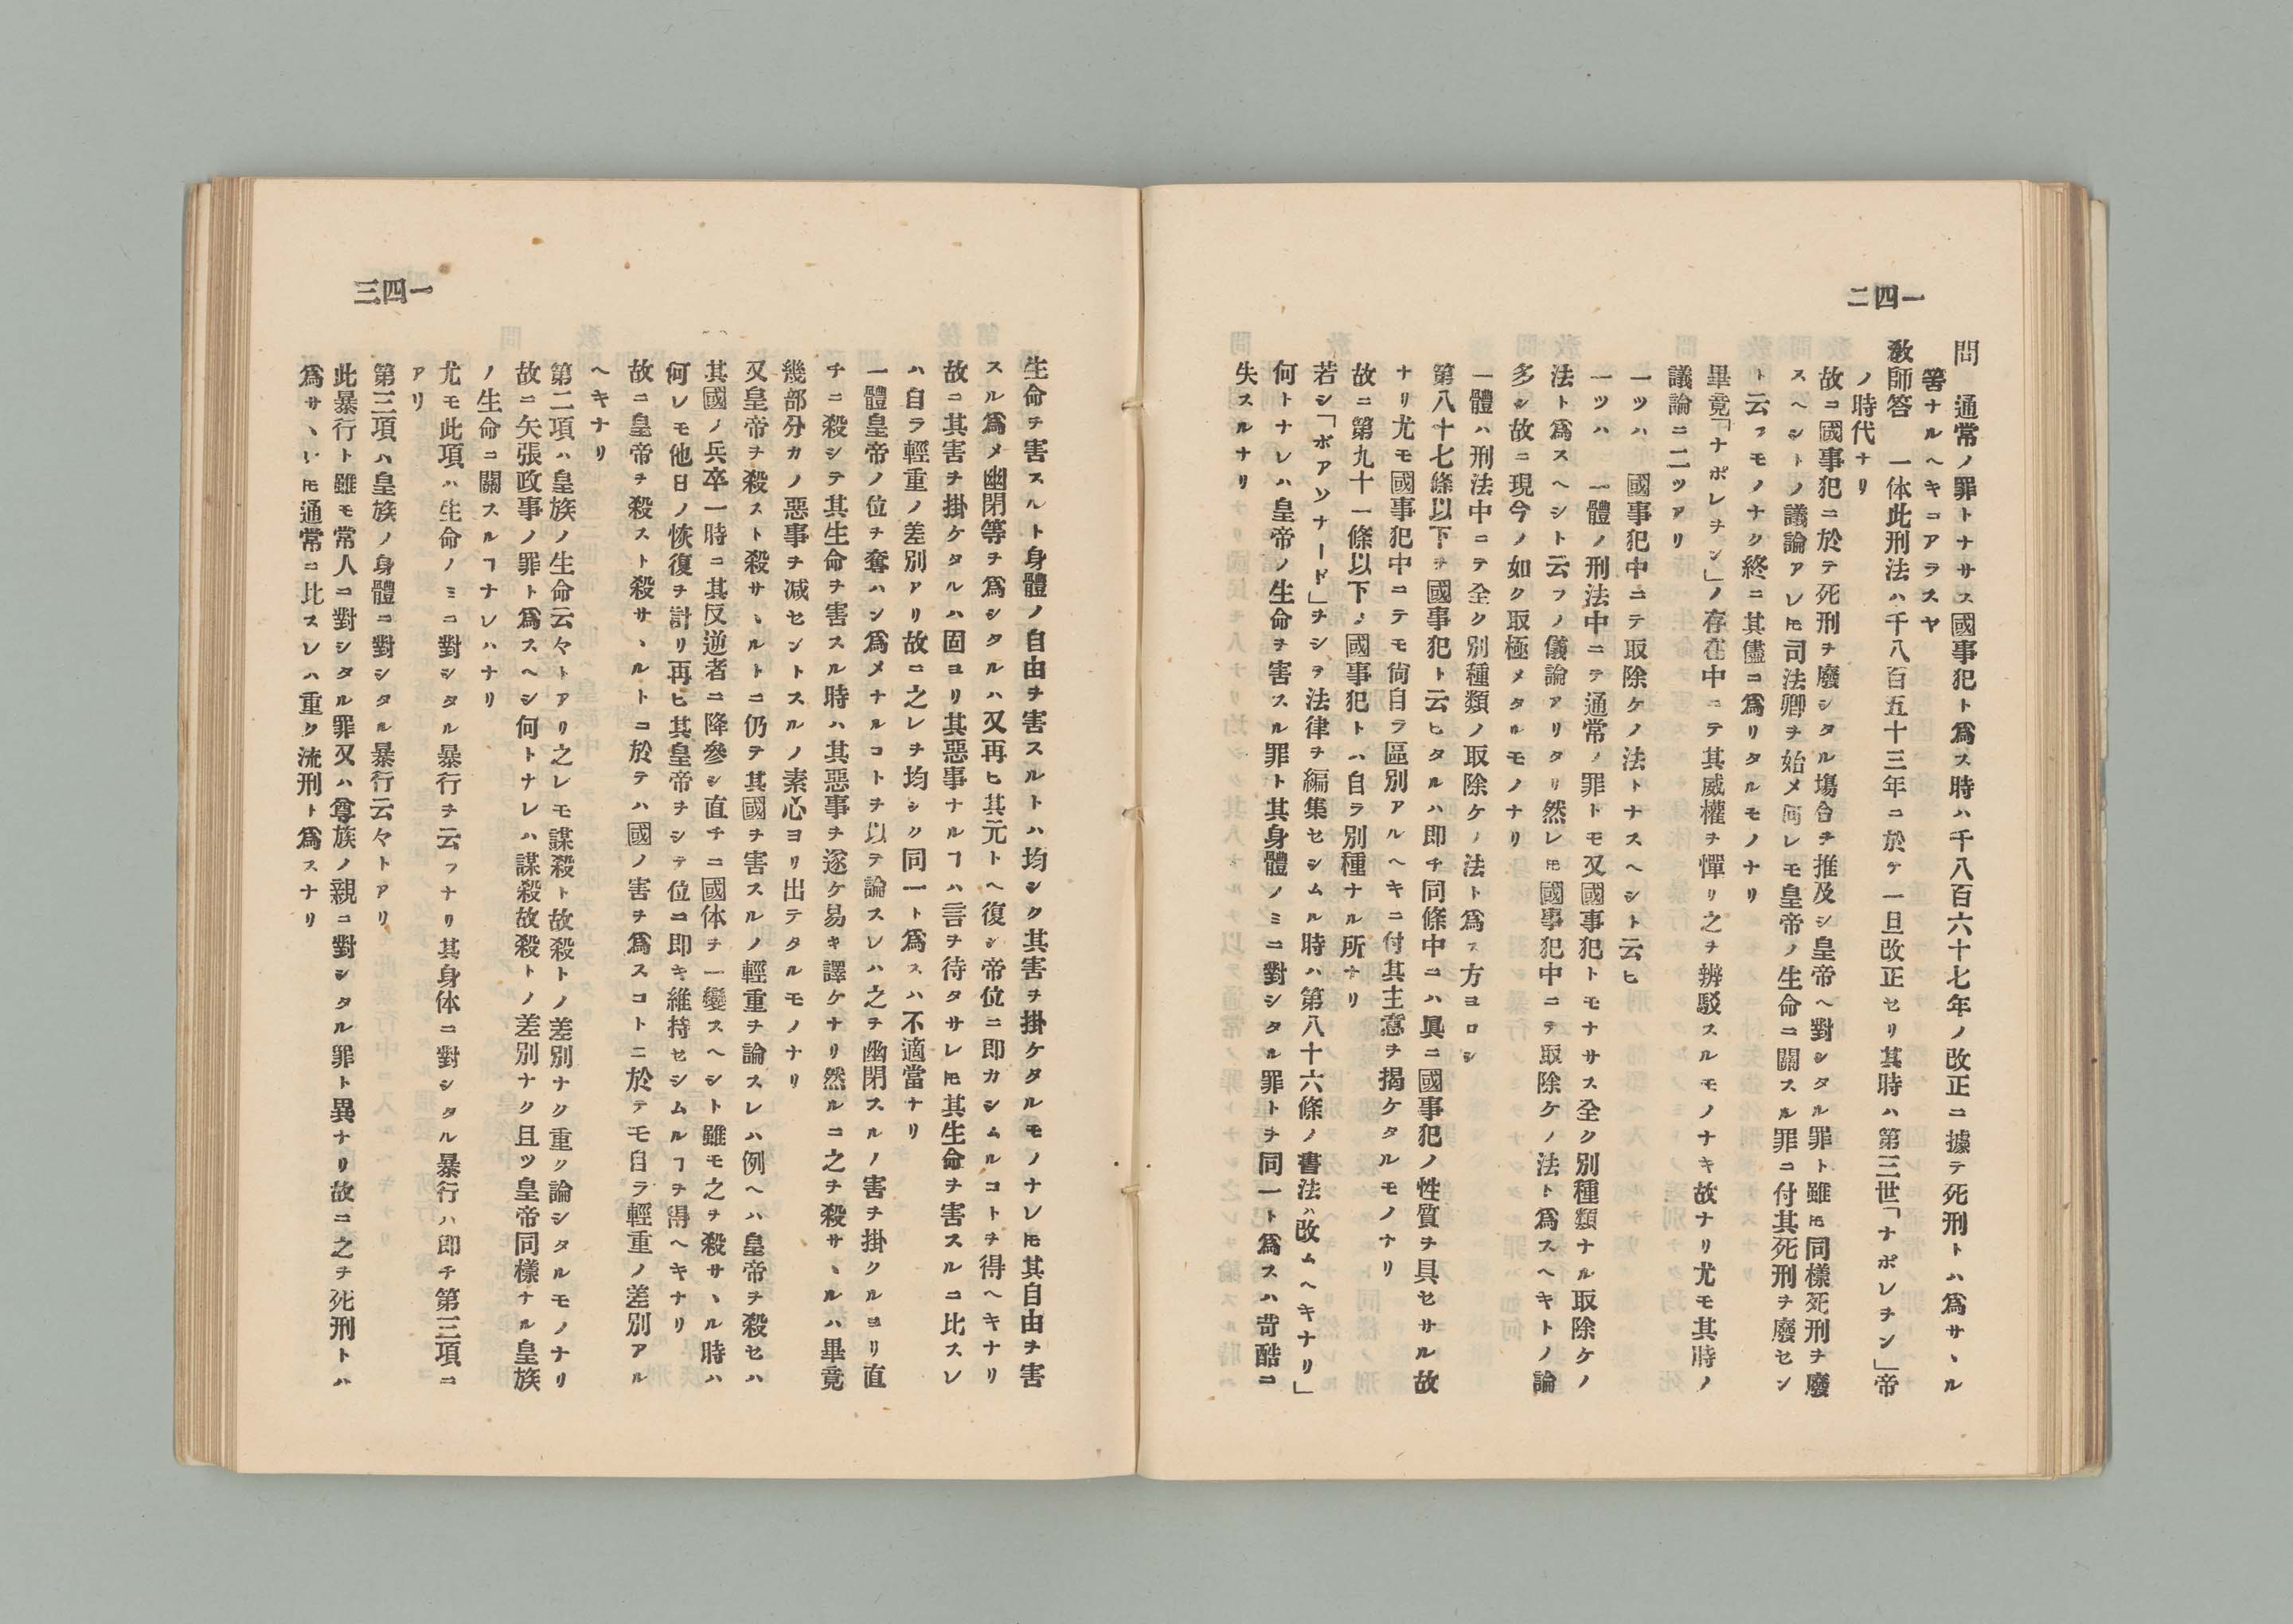 一四二
問　通常ノ罪トナサス國事犯ト爲ス時ハ千八百六十七年ノ改正ニ據テ死刑トハ爲サヽル
筈ナルヘキニアラスヤ
敎師答　一体此刑法ハ千八百五十三年ニ於テ一旦改正セリ其時ハ第三世「ナポレヲン」帝
ノ時代ナリ
故ニ國事犯ニ於テ死刑ヲ廢シタル塲合ヲ推及シ皇帝ヘ對シタル罪ト雖ヒ同樣死刑ヲ廢
スヘシトノ議論アレ𪜈司法卿ヲ始メ何レモ皇帝ノ生命ニ關スル罪ニ付其死刑ヲ廢セン
ト云フモノナク終ニ其儘ニ爲リタルモノナリ
畢竟「ナポレヲン」ノ存在中ニテ其威權ヲ憚リ之ヲ辨駁スルモノナキ故ナリ尤モ其時ノ
議論ニ二ツアリ
一ツハ　國事犯中ニテ取除ケノ法トナスヘシト云ヒ
一ツハ　一體ノ刑法中ニテ通常ノ罪トモ又國事犯トモナサス全ク別種類ナル取除ケノ
法ト爲スヘシト云フノ儀論アリタリ然レ𪜈國事犯中ニテ取除ケノ法ト爲スヘキトノ論
多シ故ニ現今ノ如ク取極メタルモノナリ
一體ハ刑法中ニテ全ク別種類ノ取除ケノ法ト爲ス方ヨロシ
第八十七條以下ヲ國事犯ト云ヒタルハ即チ同條中ニハ眞ニ國事犯ノ性質ヲ具セサル故
ナリ尤モ國事犯中ニテモ尙自ラ區別アルヘキニ付其主意ヲ揭ケタルモノナリ
故ニ第九十一條以下ノ國事犯トハ自ラ別種ナル所ナリ
若シ「ボアソナード」ヲシテ法律ヲ編集セシムル時ハ第八十六條ノ書法ハ改ムヘキナリ」
何トナレハ皇帝ノ生命ヲ害スル罪ト其身體ノミニ對シタル罪トヲ同一ト爲スハ苛酷ニ
失スルナリ
一四三
生命ヲ害スルト身體ノ自由ヲ害スルトハ均シク其害ヲ掛ケタルモノナレ𪜈其自由ヲ害
スル爲メ幽閉等ヲ爲シタルハ又再ヒ其元トヘ復シ帝位ニ即カシムルコトヲ得ヘキナリ
故ニ其害ヲ掛ケタルハ固ヨリ其惡事ナルヿハ言ヲ待タサレ𪜈其生命ヲ害スルニ比スレ
ハ自ラ輕重ノ差別アリ故ニ之レヲ均シク同一ト爲スハ不適當ナリ
一體皇帝ノ位ヲ奪ハン爲メナルコトヲ以テ論スレハ之ヲ幽閉スルノ害ヲ掛クルヨリ直
チニ殺シテ其生命ヲ害スル時ハ其惡事ヲ遂ケ易キ譯ケナリ然ルニ之ヲ殺サヽルハ畢竟
幾部分カノ惡事ヲ减セントスルノ素心ヨリ出テタルモノナリ
又皇帝ヲ殺スト殺サヽルトニ仍テ其國ヲ害スルノ輕重ヲ論スレハ例ヘハ皇帝ヲ殺セハ
其國ノ兵卒一時ニ其反逆者ニ降參シ直チニ國体ヲ一變スヘシト雖モ之ヲ殺サヽル時ハ
何レモ他日ノ恢復ヲ計リ再ヒ其皇帝ヲシテ位ニ即キ維持セシムルヿヲ得ヘキナリ
故ニ皇帝ヲ殺スト殺サヽルトニ於テハ國ノ害ヲ爲スコトニ於テモ自ラ輕重ノ差別アル
ヘキナリ
第二項ハ皇族ノ生命云々トアリ之レモ謀殺ト故殺トノ差別ナク重ク論シタルモノナリ
故ニ矢張政事ノ罪ト爲スヘシ何トナレハ謀殺故殺トノ差別ナク且ツ皇帝同樣ナル皇族
ノ生命ニ關スルヿナレハナリ
尤モ此項ハ生命ノミニ對シタル暴行ヲ云フナリ其身体ニ對シタル暴行ハ即チ第三項ニ
アリ
第三項ハ皇族ノ身體ニ對シタル暴行云々トアリ
此暴行ト雖モ常人ニ對シタル罪又ハ尊族ノ親ニ對シタル罪ト異ナリ故ニ之ヲ死刑トハ
爲サヽレ𪜈通常ニ比スレハ重ク流刑ト爲スナリ